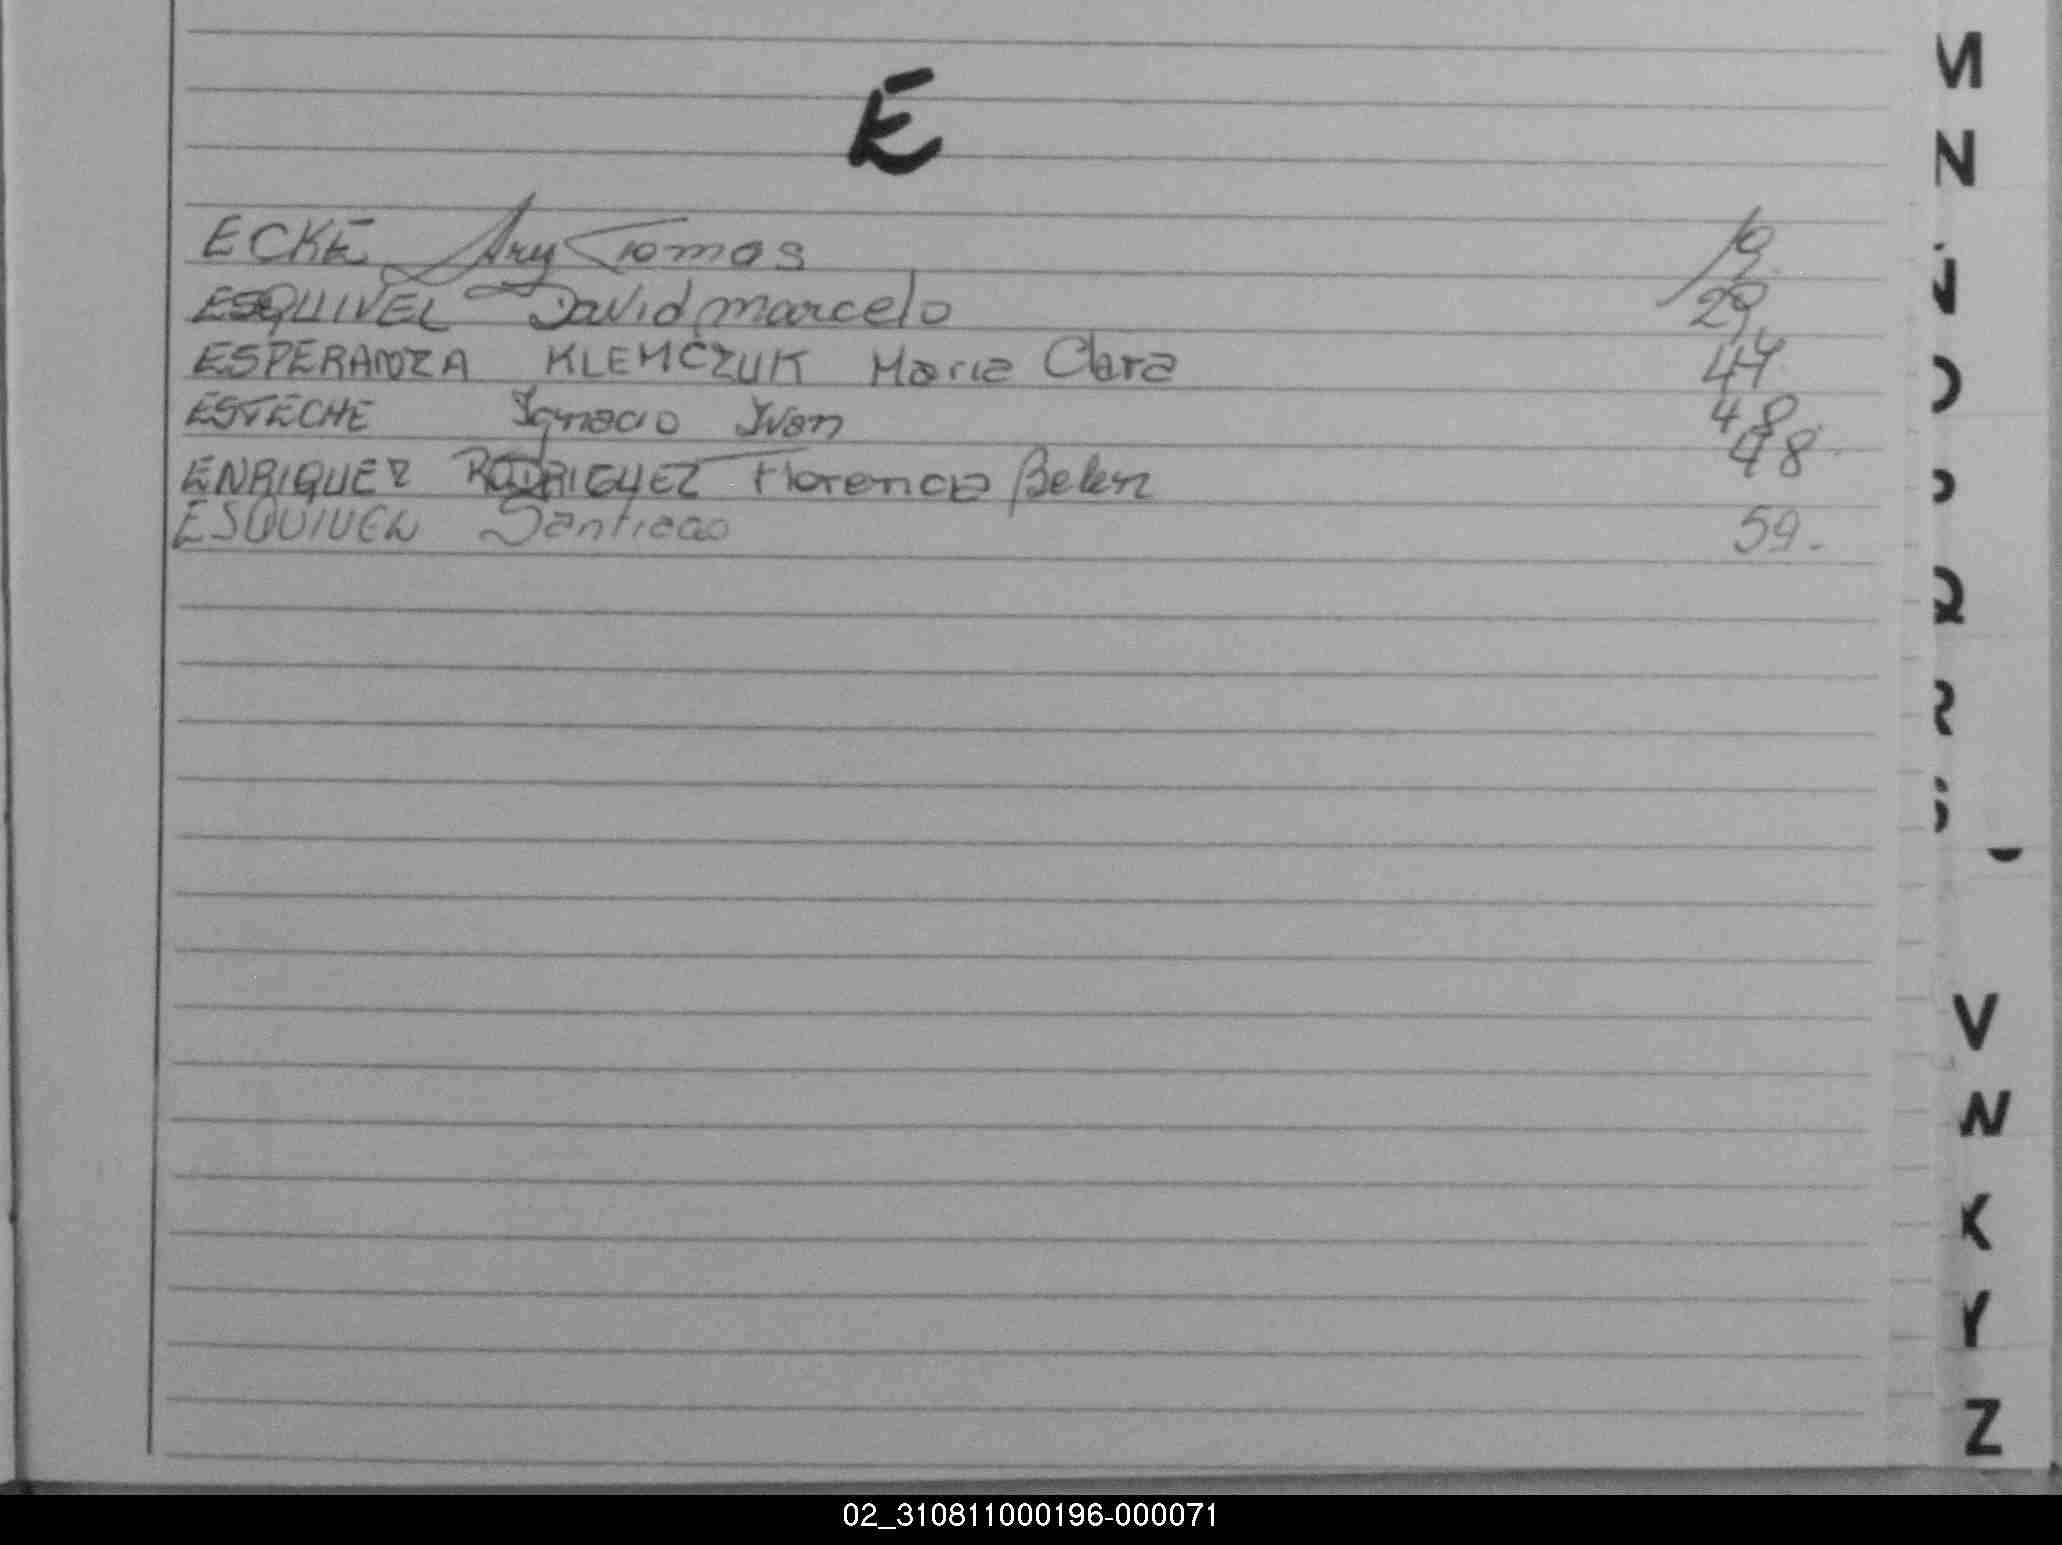 E
ECKE Ary Tomas 19.
ESQUIVEL David marcelo 29,
ESPERANZA KLEMCZUK Maria Clara 44.
ESTECHE Ignacio Ivan 48.
ENRIQUEZ RODRIGUEZ Florencia Belen 48.
ESQUIVEL Santiago 59.
M
N
Q
R
V
W
X
Y
Z
02_310811000196-000071